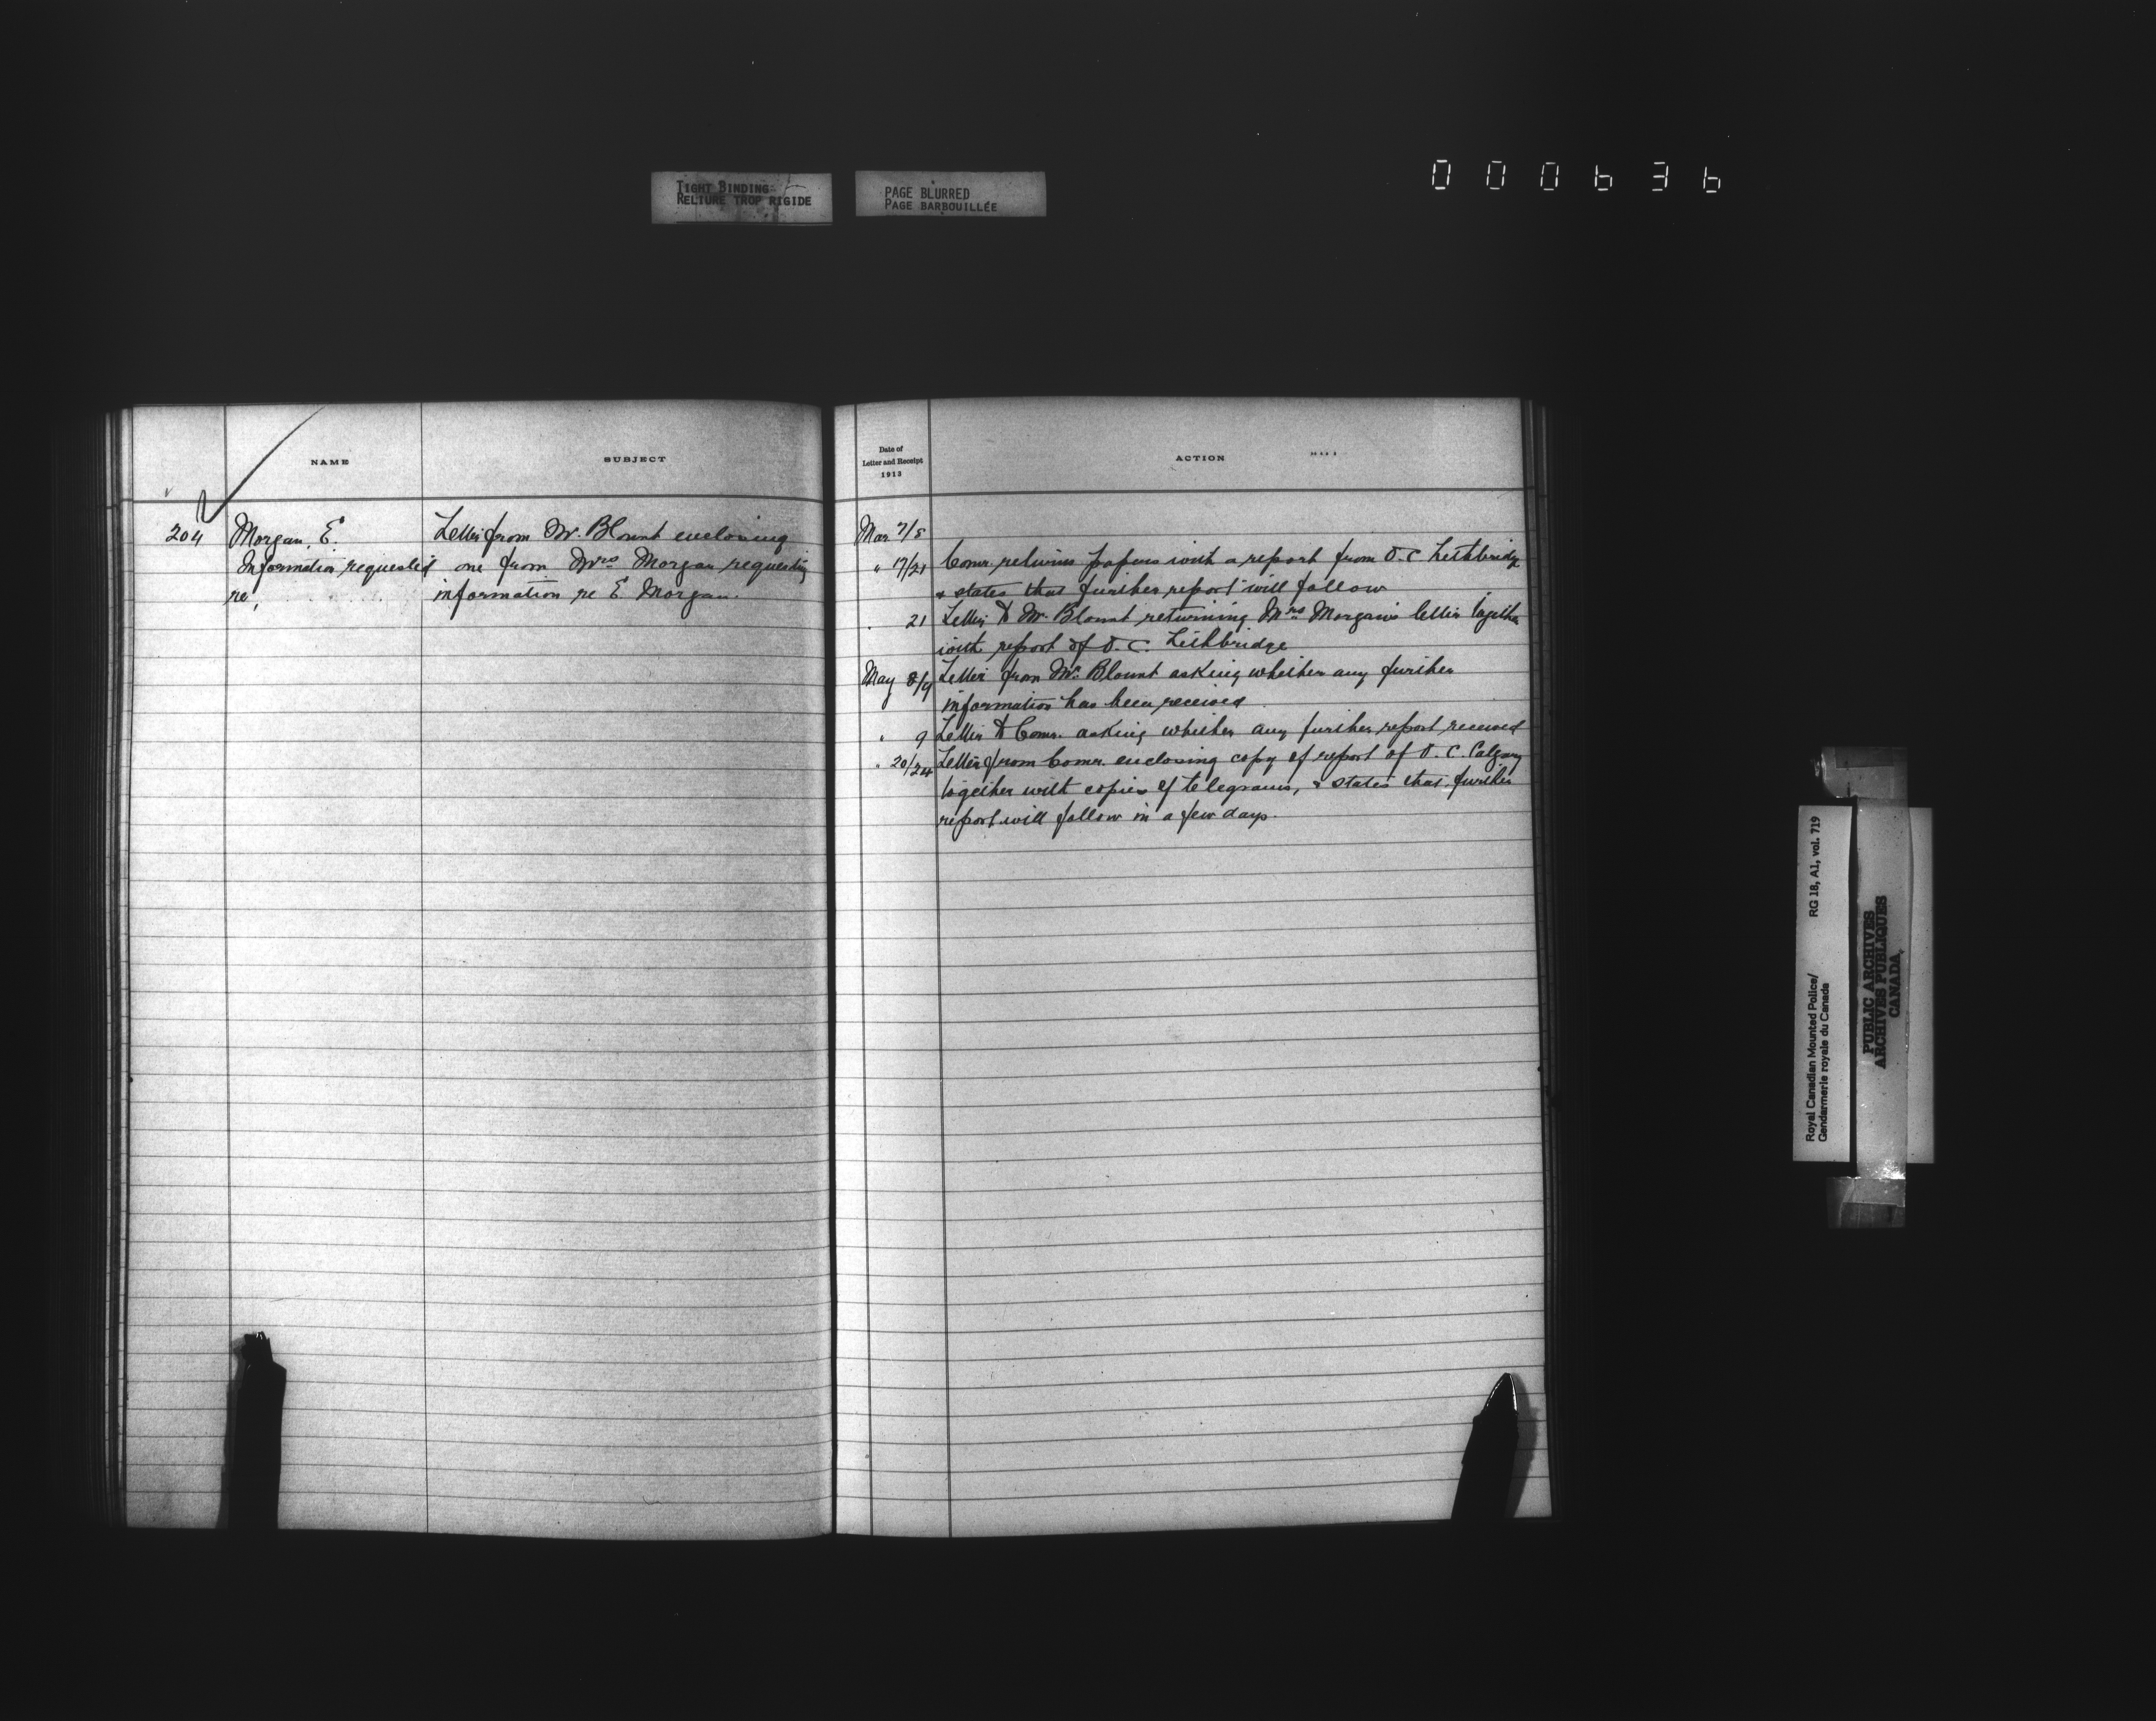 TIGHT BINDING
RELIURE TROP RIGIDE
PAGE BLURRED
PAGE BARBOUILLÉE
000636
NAME
SUBJECT
204
Morgan, E.
Information requested
re,
Letter from Mr. Blount enclosing
one from Mrs Morgan requesting
information re E Morgan.
Date of
Letter and Receipt
1913
ACTION
Mar 7/8
" 17/21 Comr. returns papers with a report from O.C. Lethbridge
& states that further report will follow
21 Letter to Mr. Blount returning Mrs Morgan's letter together
with report of O.C. Lethbridge
May 8/9 Letter from Mr. Blount asking whether any further
information has been received
" 9 Letter to Comr. asking whether any further report received
" 20/24 Letter from Comr. enclosing copy of report of O.C. Calgary
together with copies of telegrams, & states that further
report will follow in a few days.
Royal Canadian Mounted Police/ RG 18, A1, vol. 719
Gendarmerie royale du Canada
PUBLIC ARCHIVES
ARCHIVES PUBLIQUES
CANADA